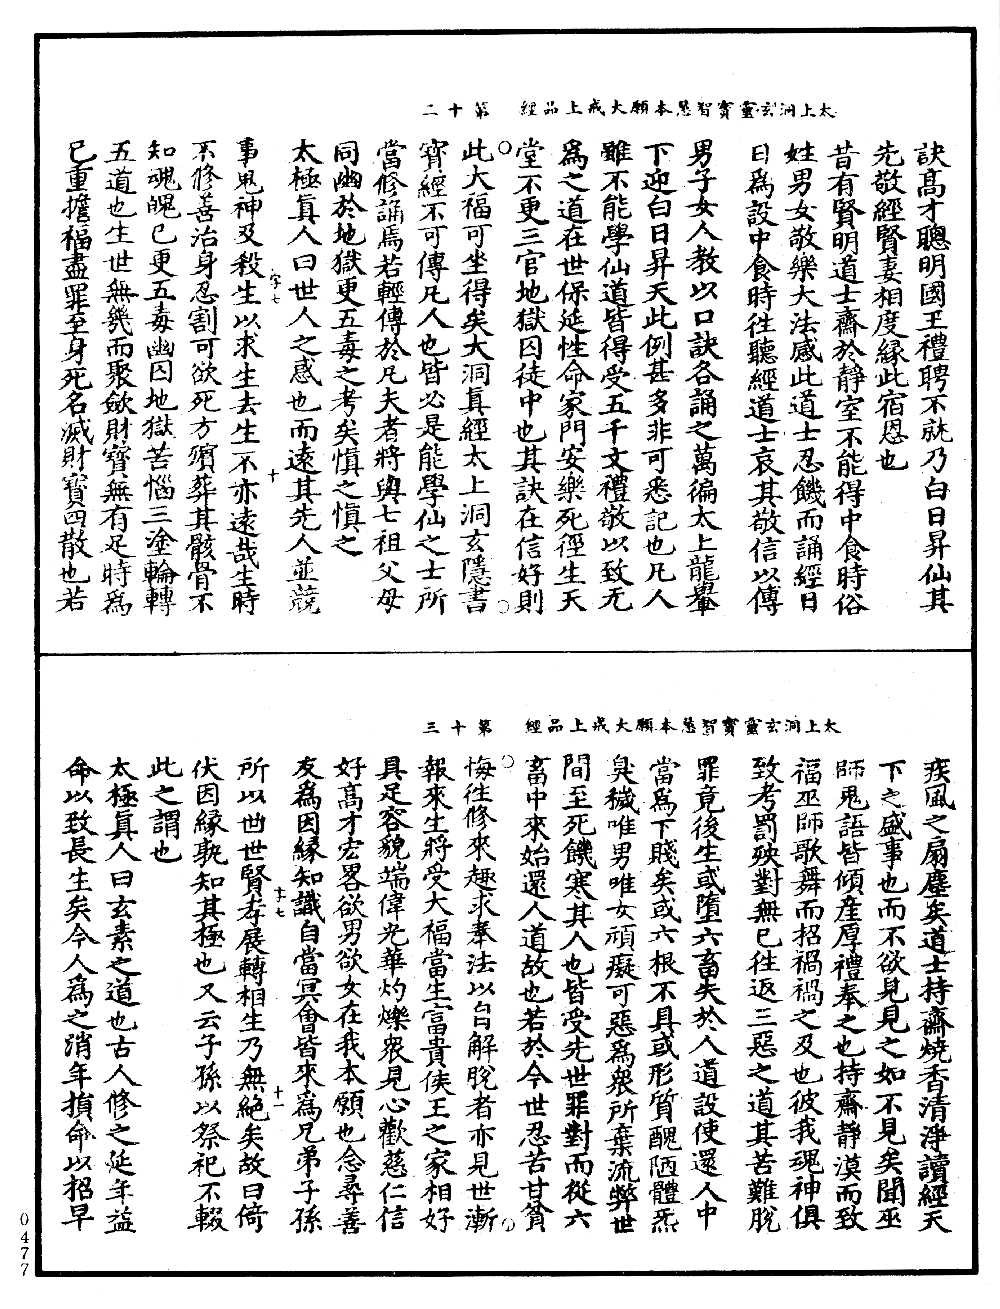 太上洞玄靈寶智慧本願大戒上品經　第十二
訣高才聰明國王禮聘不就乃白日昇仙其
先敬經賢妻相度緣此宿恩也
昔有賢明道士齋於靜室不能得中食時俗
姓男女敬樂大法感此道士忍饑而誦經日
日為設中食時往聽經道士哀其敬信以傳
男子女人教以口訣各誦之萬徧太上龍轝
下迎白日昇天此例甚多非可悉記也凡人
雖不能學仙道皆得受五千文禮敬以致无
為之道在世保延性命家門安樂死徑生天
堂不更三官地獄囚徒中也其訣在信好則
此大福可坐得矣大洞眞經太上洞玄隱書
寶經不可傳凡人也皆必是能學仙之士所
當修誦焉若輕傳於凡夫者將與七祖父母
同幽於地獄更五毒之考矣愼之愼之
太極眞人曰世人之惑也而遠其先人並競
事鬼神及殺生以求生去生不亦遠哉生時
不修善治身忍割可欲死方殯葬其骸骨不
知魂魄已更五毒幽囚地獄苦惱三塗輪轉
五道也生世無幾而聚斂財寶無有足時為
己重擔福盡罪至身死名滅財寶四散也若
字七
十
太上洞玄靈寶智慧本願大戒上品經　第十三
疾風之扇塵矣道士持齋燒香清淨讀經天
下之盛事也而不欲見見之如不見矣聞巫
師鬼語皆傾産厚禮奉之也持齋靜漠而致
福巫師歌舞而招禍禍之及也彼我魂神俱
致考罰殃對無已往返三惡之道其苦難脫
罪竟後生或墮六畜失於人道設使還人中
當為下賤矣或六根不具或形質醜陋體炁
臭穢唯男唯女頑癡可惡為衆所棄流弊世
間至死饑寒其人也皆受先世罪對而從六
畜中來始還人道故也若於今世忍苦甘貧
悔往修來趣求奉法以自解脫者亦見世漸
報來生將受大福當生富貴侯王之家相好
具足容貌端偉光華灼爍衆見心歡慈仁信
好高才宏畧欲男欲女在我本願也念尋善
友為因緣知識自當冥會皆來為兄弟子孫
所以世世賢孝展轉相生乃無絕矣故曰倚
伏因緣孰知其極也又云子孫以祭祀不輟
此之謂也
太極眞人曰玄素之道也古人修之延年益
命以致長生矣今人為之消年損命以招早
字七
十一
0477